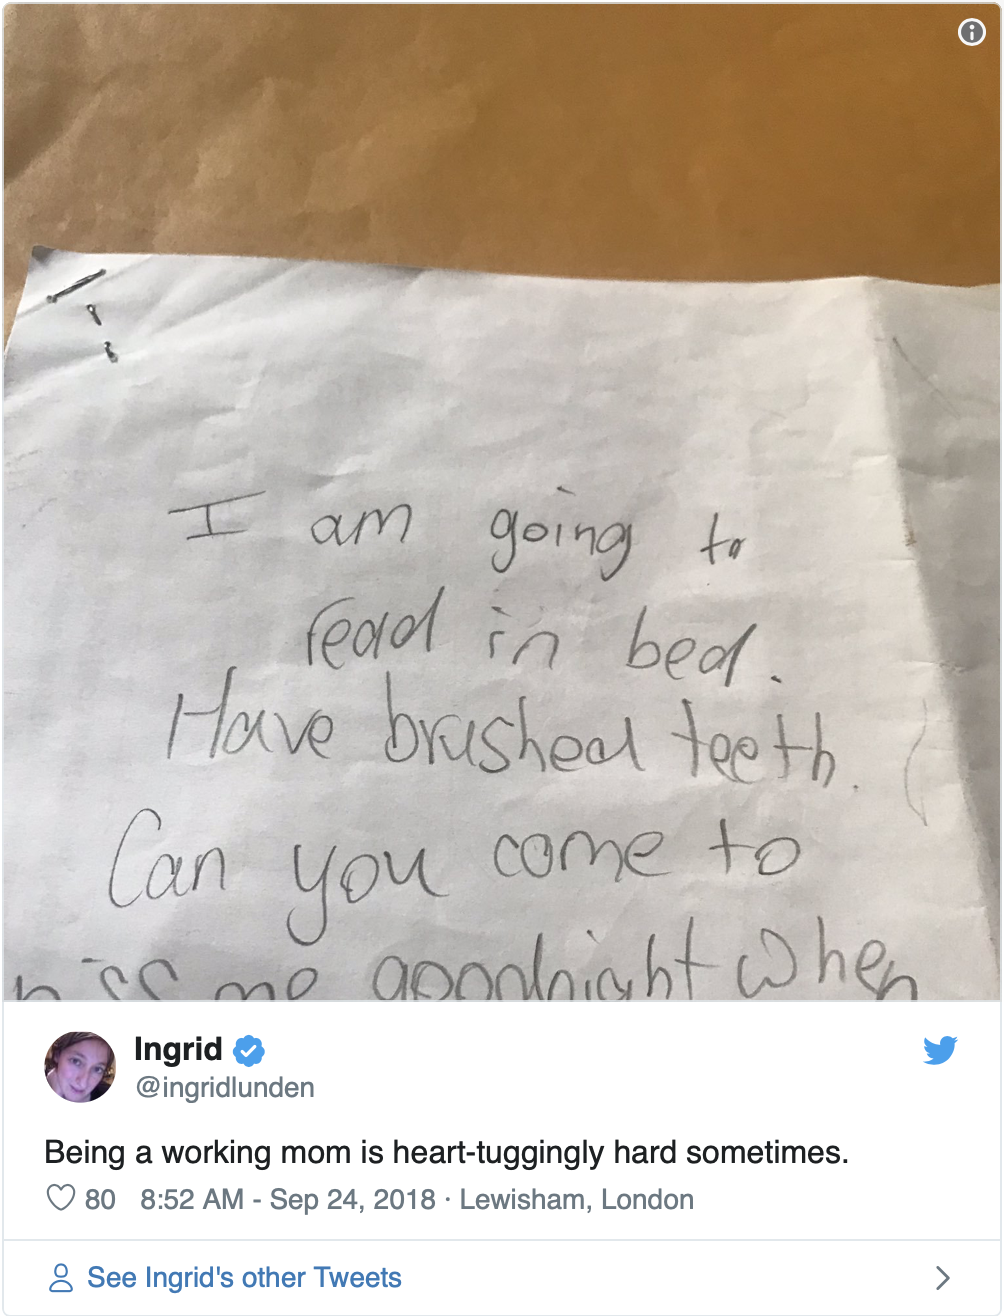 I am going to
read in bed.
Have brushed teeth.
Can you come to
kiss me goodnight when
Ingrid
@ingridlunden
Being a working mom is heart-tuggingly hard sometimes.
80 8:52 AM - Sep 24, 2018 · Lewisham, London
See Ingrid's other Tweets